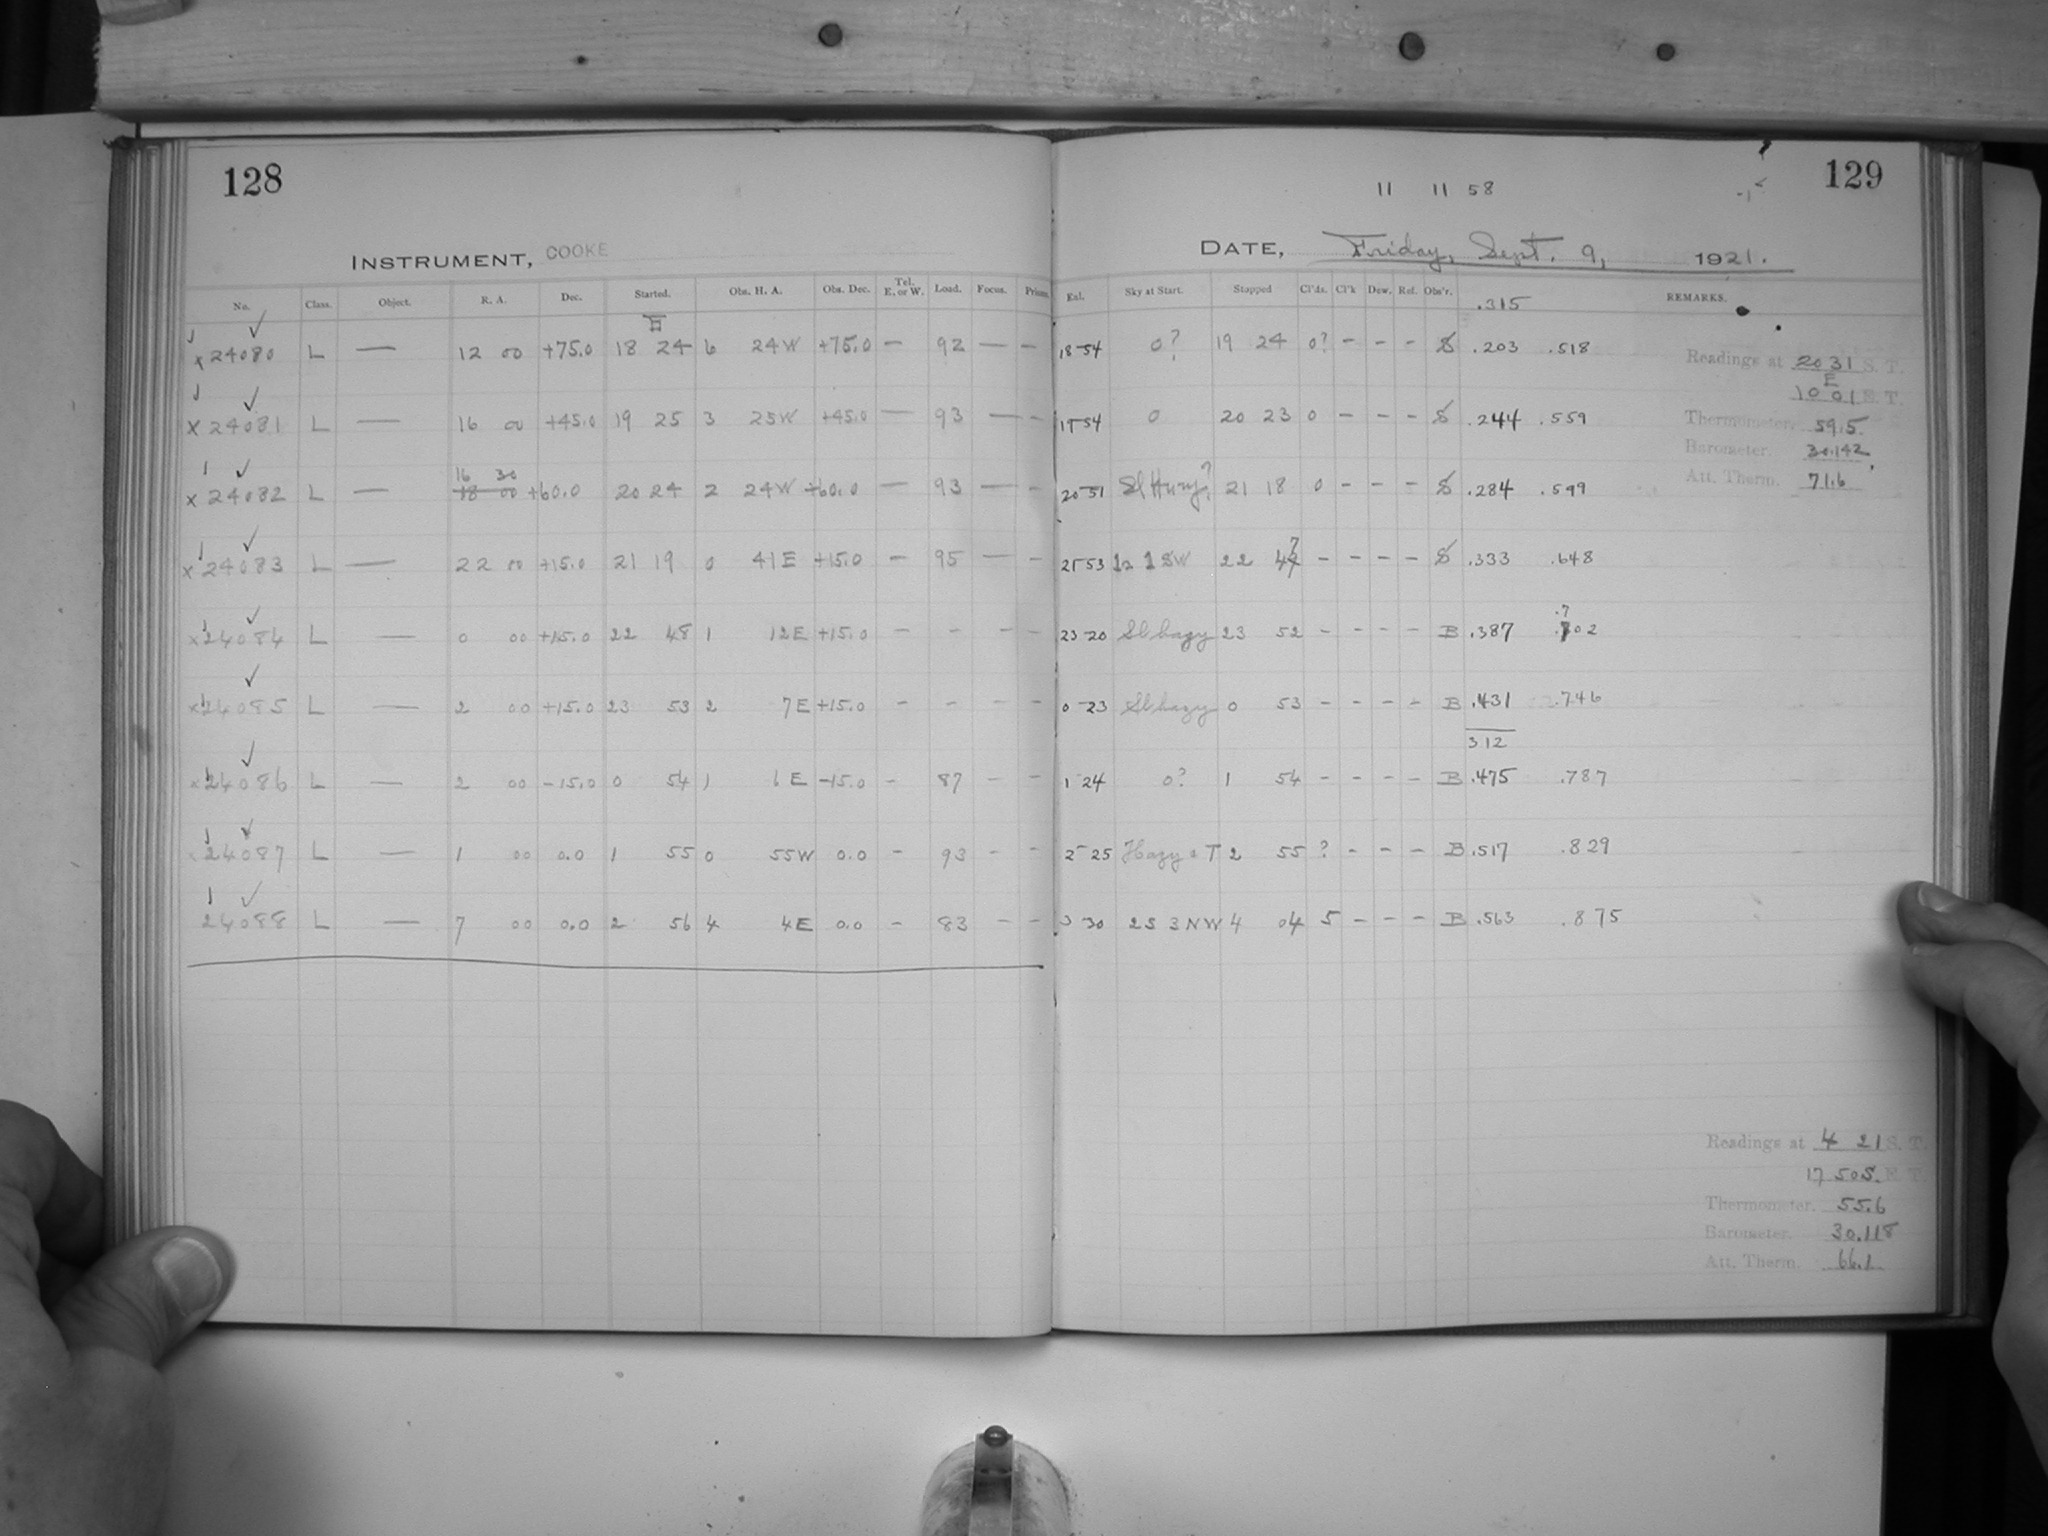 128
INSTRUMENT, COOKE
No. Class. Object. R. A. Dec. Started. Obs. H. A. Obs. Dec. Tel. E. or W. Load. Focus. Prism.
E
x 24080 L — 12 00 +75.0 18 24 6 24W +75.0 — 92 — —
x 24081 L — 16 00 +45.0 19 25 3 25W +45.0 — 93 — —
16 30
x 24082 L — 18 00 +60.0 20 24 2 24W +60.0 — 93 — —
x 24083 L — 22 00 +15.0 21 19 0 41E +15.0 — 95 — —
x 24084 L — 0 00 +15.0 22 48 1 12E +15.0 - - - -
x 24085 L — 2 00 +15.0 23 53 2 7E +15.0 - - - -
x 24086 L — 2 00 -15.0 0 54 1 6E -15.0 - 87 - -
x 24087 L — 1 00 0.0 1 55 0 55W 0.0 - 93 - -
24088 L — 7 00 0.0 2 56 4 4E 0.0 - 83 - -
129
11 11 58
DATE, Friday, Sept. 9, 1921.
Sky at Start. Stopped Cl'ds. Cl'k Dew. Ref. Obs'r. REMARKS.
.315
18 54 0? 19 24 0? - - - S .203 .518
19 54 0 20 23 0 - - - S .244 .559
20 51 Sl Hazy? 21 18 0 - - - S .284 .599
21 53 1 SW 22 47 - - - - S .333 .648
.7
23 20 Sl hazy 23 52 - - - - B .387 .702
0 23 Sl hazy 0 53 - - - - B .431 .746
312
1 24 0? 1 54 - - - - B .475 .787
2 25 Hazy & T 2 55 ? - - - B .517 .829
3 30 2S 3NW 4 04 5 - - - B .563 .875
Readings at 20 31 S. T.
E
10 01 E. T.
Thermometer. 59.5
Barometer. 30.142
Att. Therm. 71.6
Readings at 4 21 S. T.
17 50 S. E. T.
Thermometer. 55.6
Barometer. 30.118
Att. Therm. 66.1